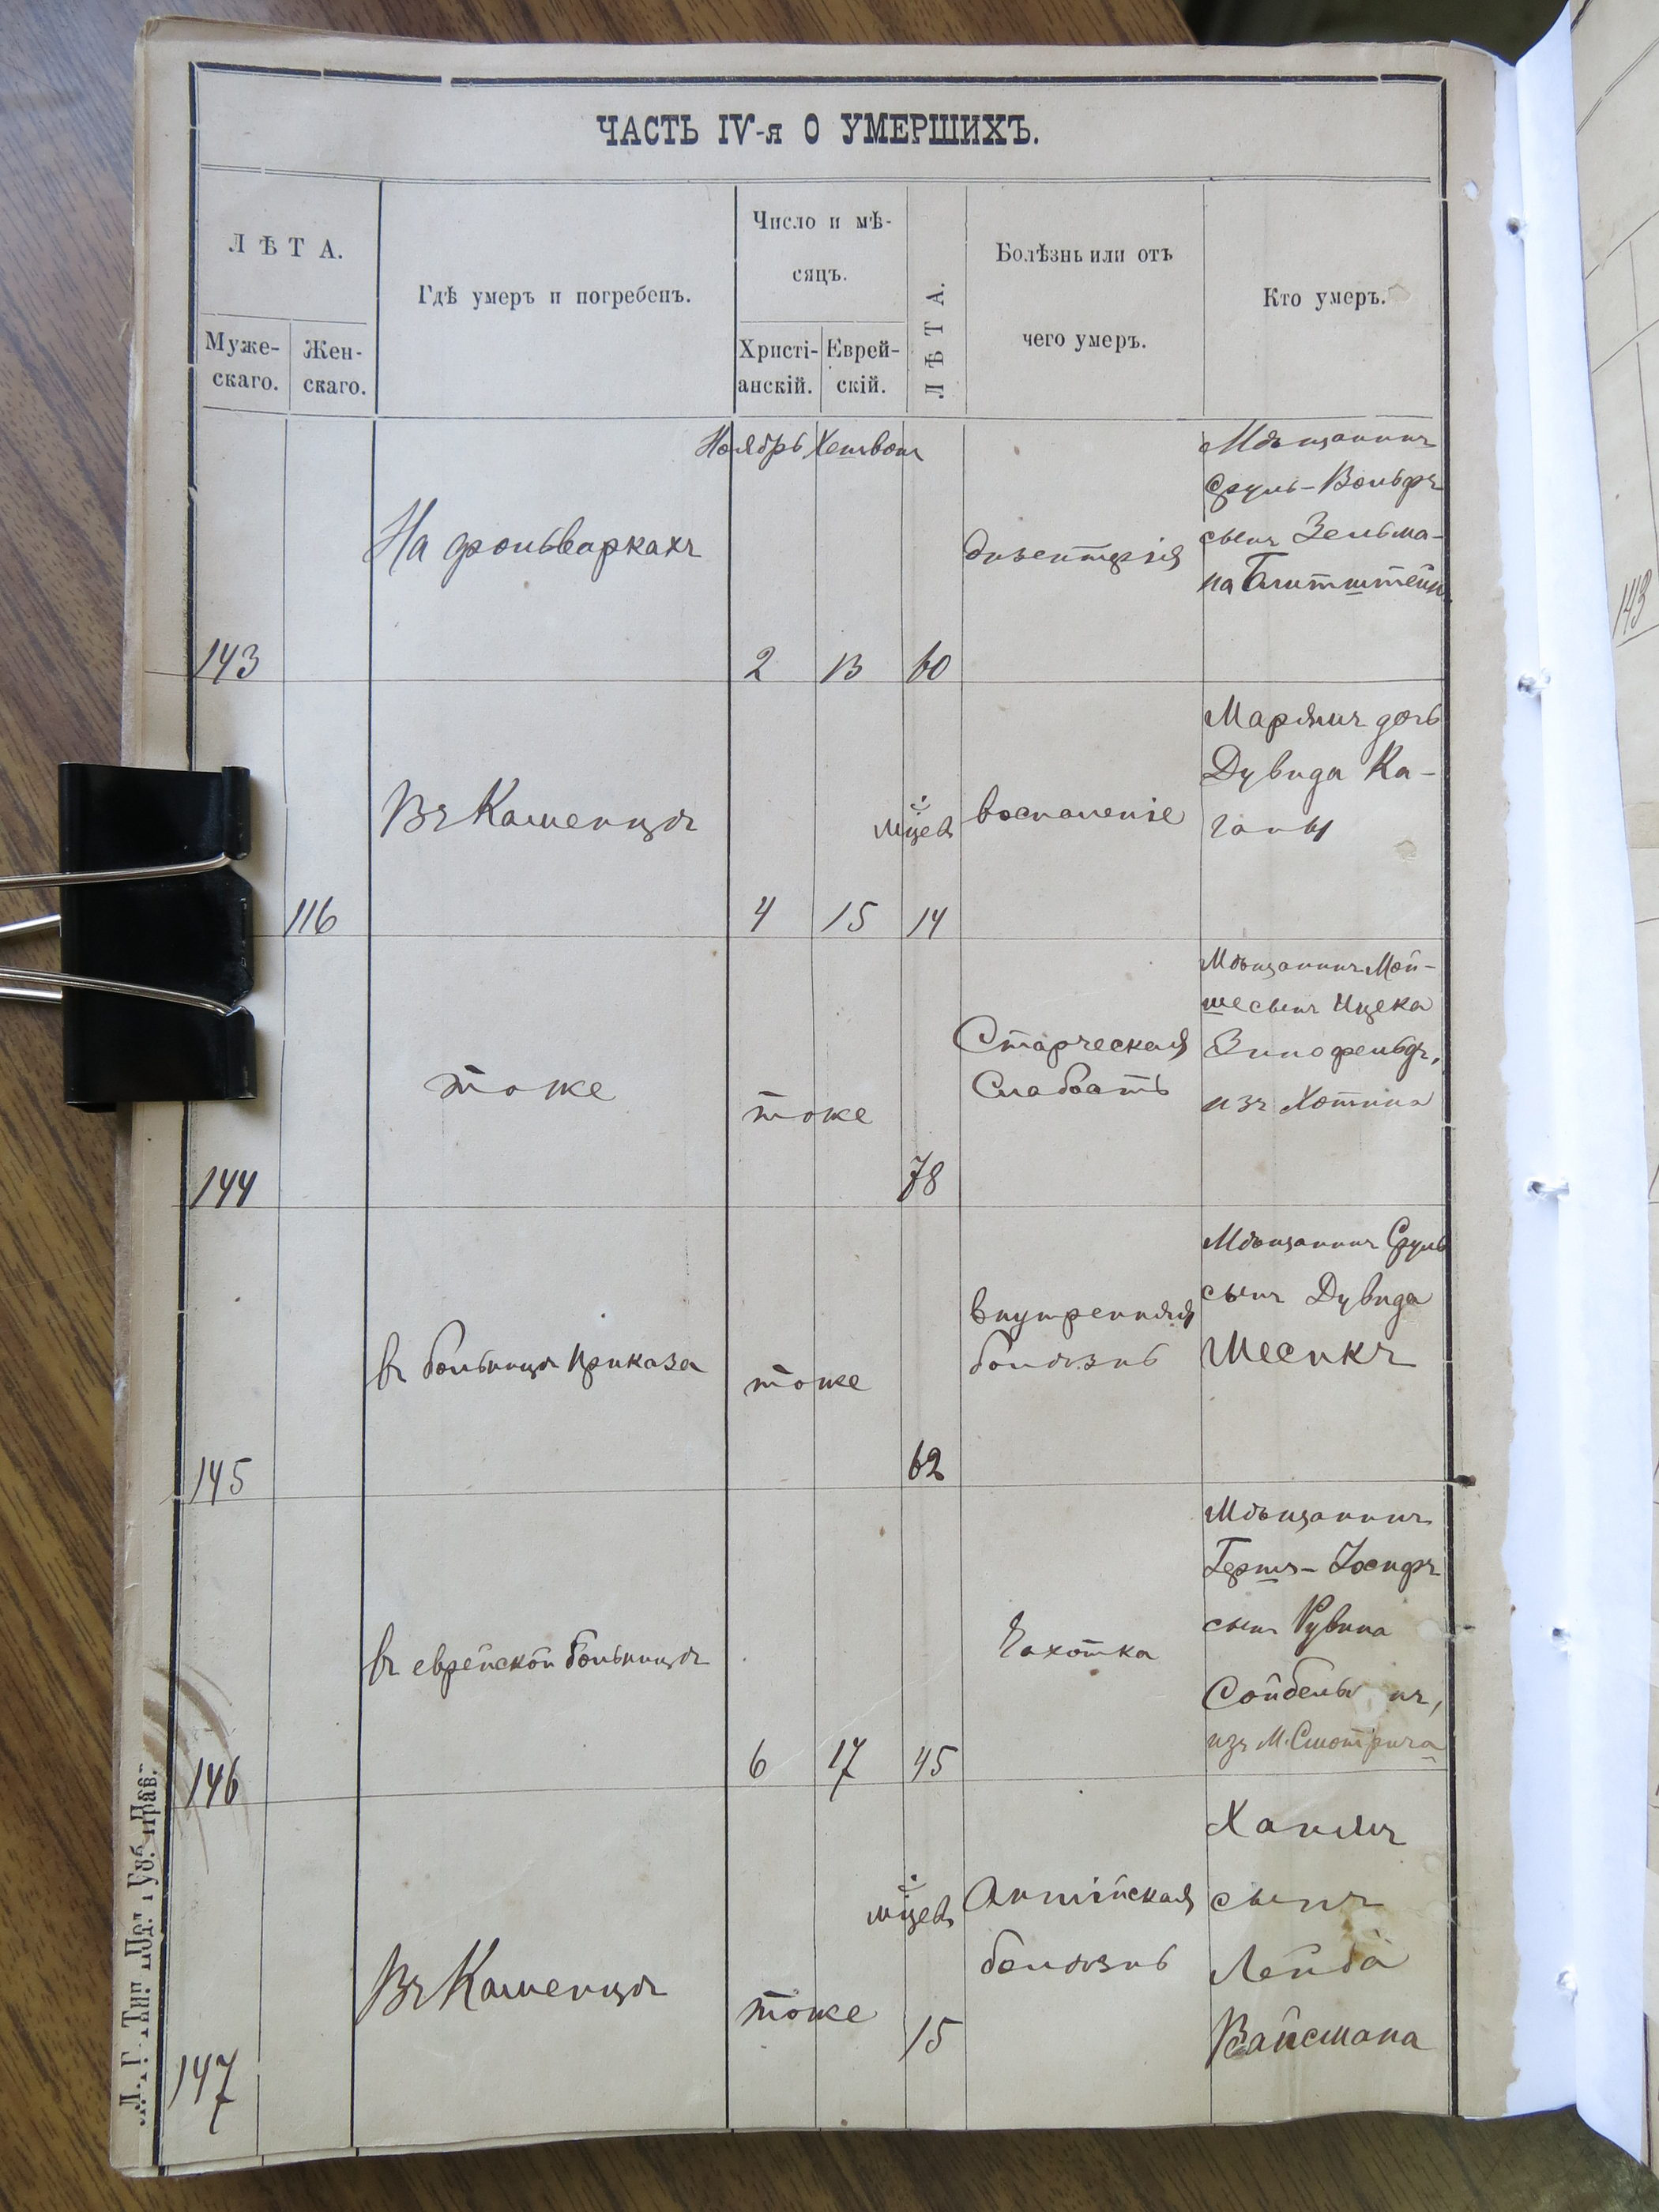 ЧАСТЬ IV-я О УМЕРШИХЪ.
ЛѢТА.
Муже-
скаго.
Жен-
скаго.
Гдѣ умеръ и погребенъ.
Число и мѣ-
сяцъ.
Христі-
анскій.
Еврей-
скій.
ЛѢТА.
Болѣзнь или отъ
чего умеръ.
Кто умеръ.
Ноябрь Хешвон
143
На фольваркахъ
2
13
60
дизентерія
Мѣщанинъ
Сруль-Вольфъ
сынъ Зельма-
на
116
Въ Каменцѣ
4
15
мцев
14
воспаленіе
Маріямъ дочь
Дувида Ка-
ганы
144
тоже
тоже
78
Старческая
Слабость
Мѣщанинъ Мой-
ше сынъ Ицека
Зинофельдъ,
изъ Хотина
145
въ больницѣ Приказа
тоже
62
внутренняя
болѣзнь
Мѣщанинъ Сруль
сынъ Дувида
Шесикъ
146
въ еврейской больницѣ
6
17
45
Чахотка
Мѣщанинъ
Гершъ-Іосифъ
сынъ Рувина
изъ М. Смотрича
147
Въ Каменцѣ
тоже
мцев
15
Англійская
болѣзнь
Хаимъ
сынъ
Лейба
Вайсмана
Губ. Прав.